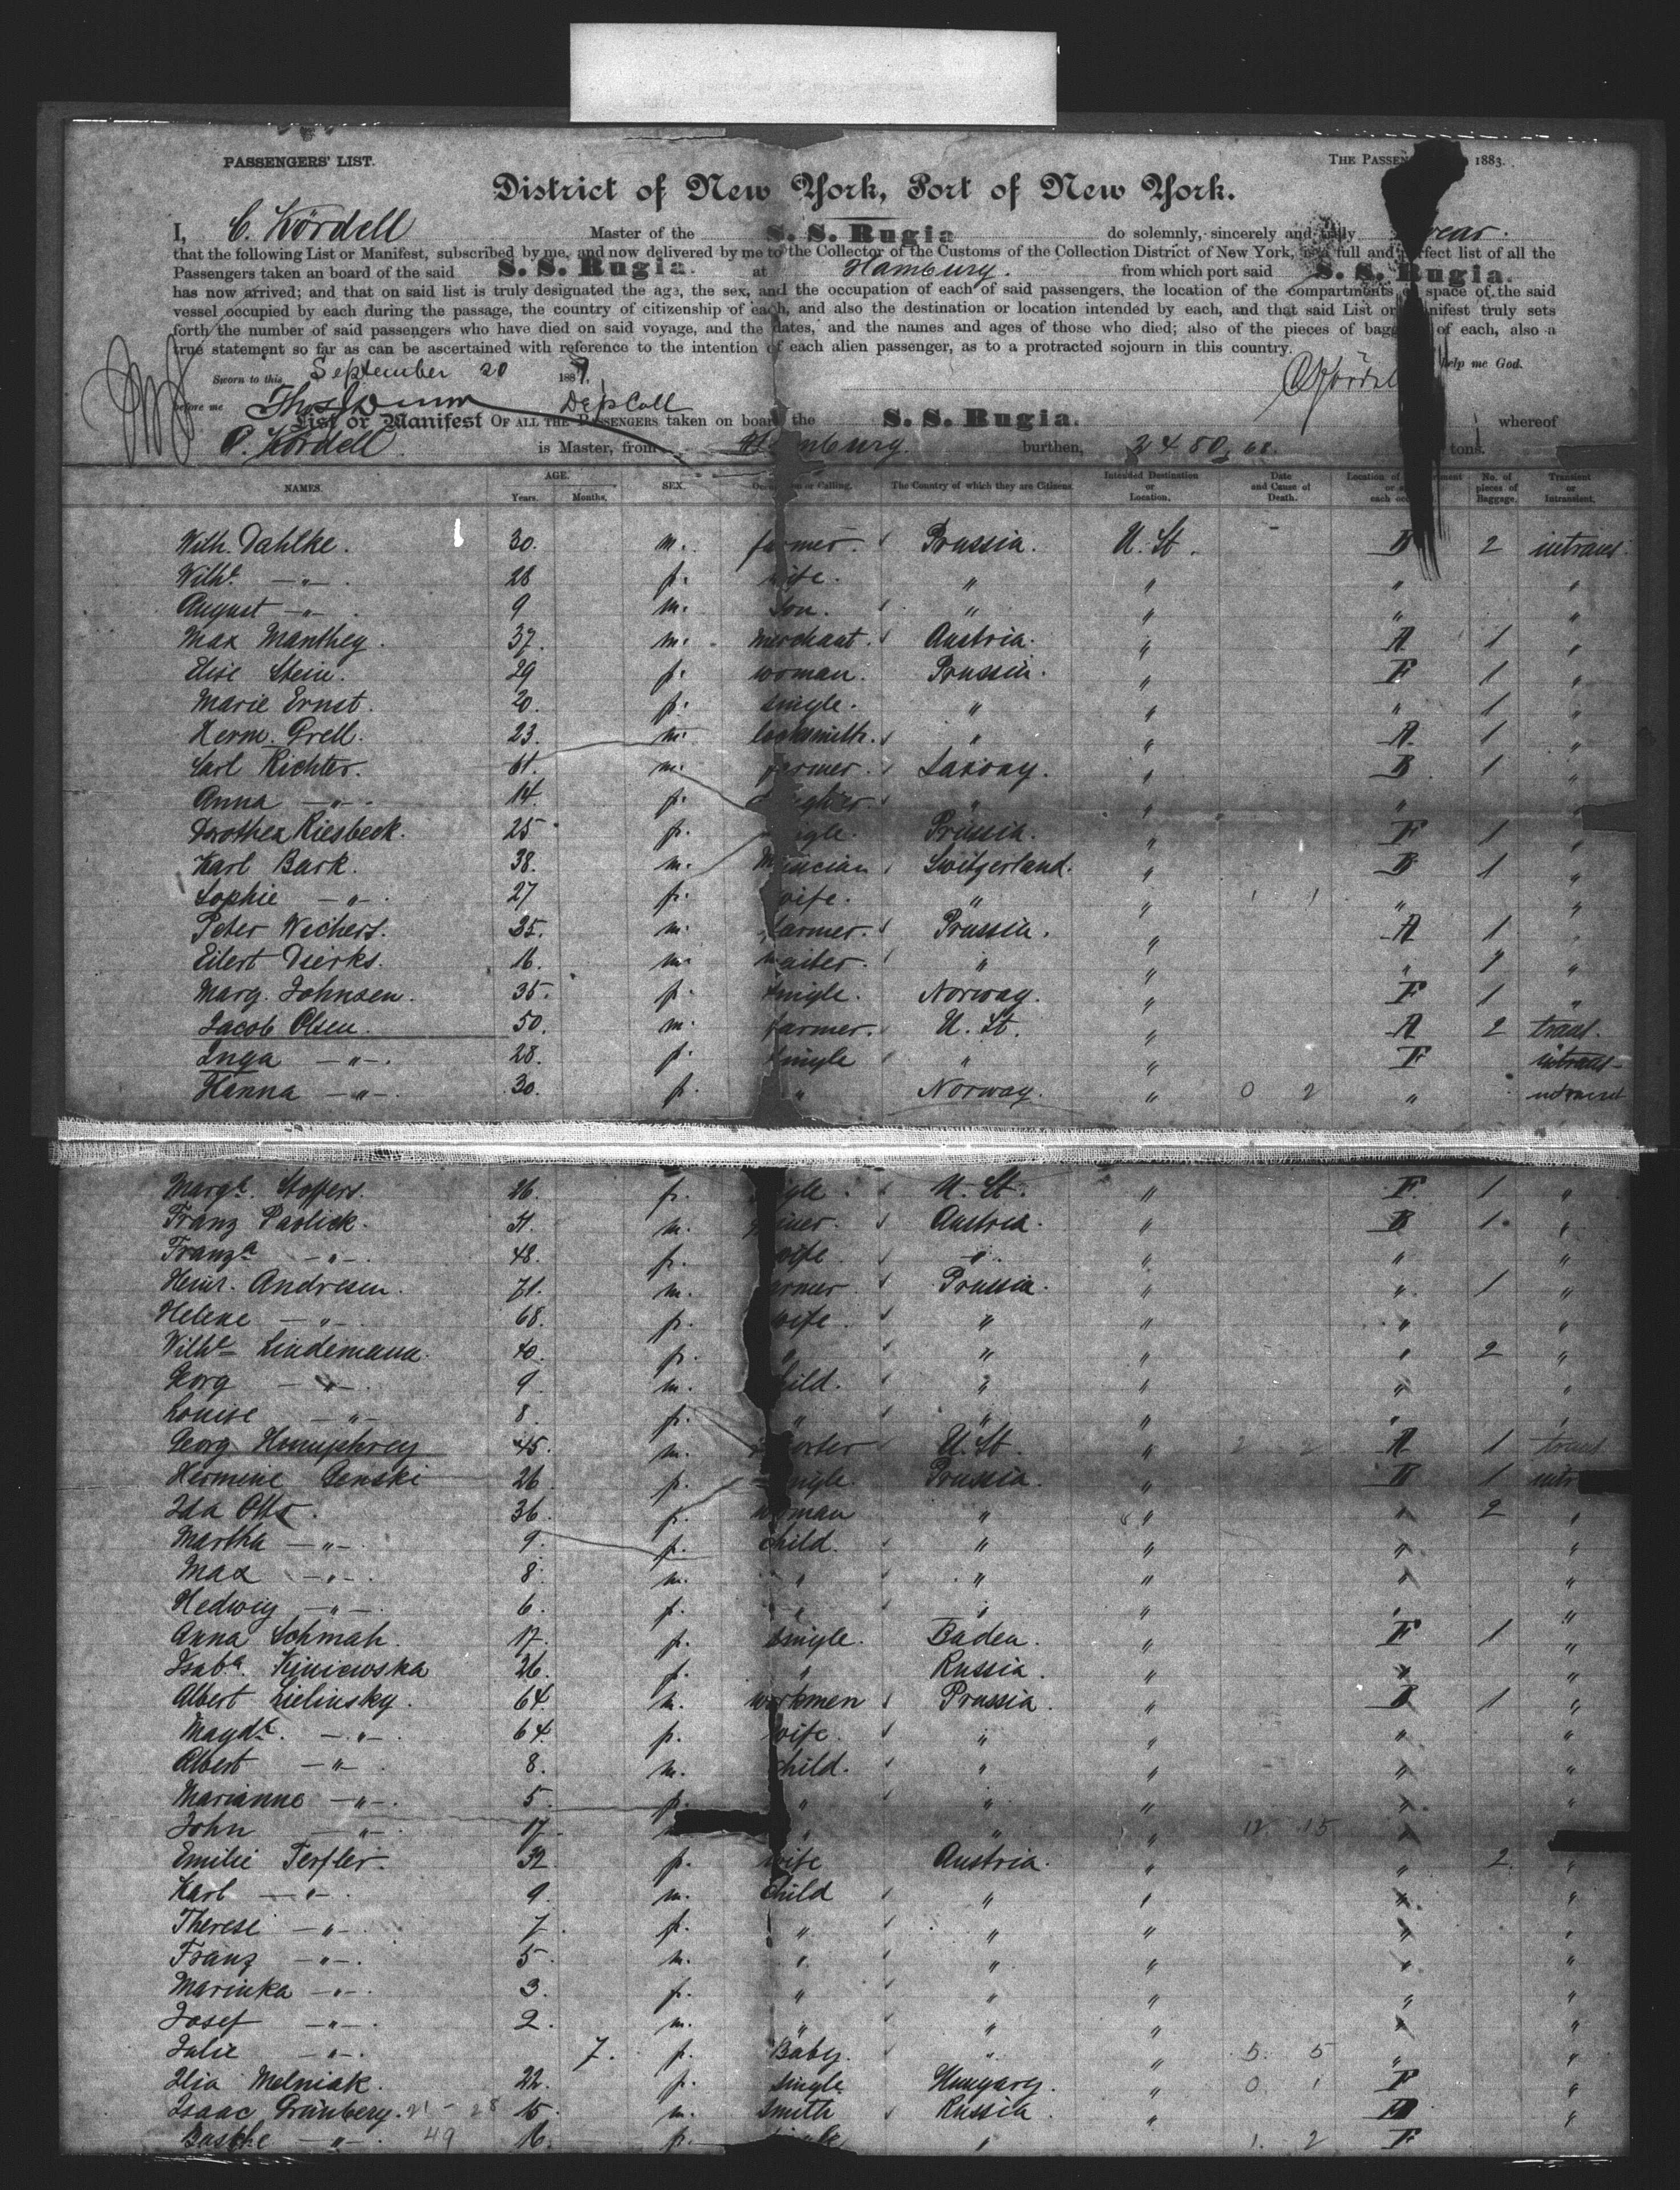 PASSENGERS' LIST.
THE PASSEN 1883.
District of New York, Port of New York.
I, C. Kördell Master of the S. S. Rugia do solemnly, sincerely and truly swear
that the following List or Manifest, subscribed by me, and now delivered by me to the Collector of the Customs of the Collection District of New York, is a full and perfect list of all the
Passengers taken an board of the said S. S. Rugia. at Hamburg. from which port said S. S. Rugia.
has now arrived; and that on said list is truly designated the age, the sex, and the occupation of each of said passengers, the location of the compartments or space of the said
vessel occupied by each during the passage, the country of citizenship of each, and also the destination or location intended by each, and that said List or Manifest truly sets
forth the number of said passengers who have died on said voyage, and the dates, and the names and ages of those who died; also of the pieces of baggage of each, also a
true statement so far as can be ascertained with reference to the intention of each alien passenger, as to a protracted sojourn in this country.
Sworn to this September 20 1887. help me God.
before me Dep Coll
List or Manifest OF ALL THE PASSENGERS taken on board the S. S. Rugia. whereof
C. Kördell. is Master, from Hamburg. burthen, 2480,68. tons.
NAMES. AGE. Years. Months. SEX. Occupation or Calling. The Country of which they are Citizens. Intended Destination or Location. Date and Cause of Death. Location of No. of pieces of Baggage. Transient or Intransient.
Wilh. Dahlke. 30. m. farmer. Prussia. U. St. B 2 intrans.
Wilhe. —"— 28 f. wife. " " " "
August —"— 9 m. son. " " " "
Max Manthey. 37. m. merchant. Austria. " A 1 "
Elise Stein. 29 f. woman. Prussia. " F 1 "
Marie Ernst. 20. f. single. " " " 1 "
Herm. Grell. 23. m. locksmith. " " A 1 "
Carl Richter. 61. m. farmer. Saxony. " B 1 "
Anna —"— 14. f. " " " "
Dorothea Riesbeck. 25 f. single. Prussia. " F 1 "
Karl Bark. 38. m. Musician Switzerland. " B 1 "
Sophie —"— 27 f. wife. " " " "
Peter Wichers. 35. m. farmer. Prussia. " A 1 "
Eilert Dierks. 16. m. waiter. " " " 1 "
Marg. Johnsen. 35. f. single. Norway. " F 1 "
Jacob Olsen. 50. m. farmer. U. St. " A 2 trans.
Inga —"— 28. f. single " " F intrans
Hanna —"— 30. f. " Norway. " 0 2 " intransit
Margh. Stoffers. 26. f. single. U. St. " F. 1 "
Franz Pavlick. 51. m. Austria. " B 1. "
Franza —"— 48. f. wife " " " "
Heinr. Andresen. 71. m. farmer Prussia. " " 1 "
Helene —"— 68. f. wife. " " " "
Wilhe Lindemann. 40. f. " " " " 2 "
Georg —"— 9. m. child. " " " "
Louise —"— 8. f. " " " " "
Georg Houmphrey 45. m. U. St. " 2 2 A 1 trans
Hermine Genski 26 f. single. Prussia. " B 1 intr
Ida Otto. 36. f. woman " " " 2 "
Martha —"— 9. f. child. " " " "
Max —"— 8. m. " " " " "
Hedwig —"— 6. f. " " " " "
Anna Schmah. 17. f. single. Baden. " F 1 "
Isaba. Kiniewska 26. f. " Russia. " " "
Albert Zielinsky. 64. m. workmen Prussia. " B 1 "
Magde. —"— 64. f. wife. " " " "
Albert —"— 8. m. child. " " " "
Marianne —"— 5. f. " " " " "
John —"— 17. " " " 12. 15 "
Emilie Terfler. 32. f. wife Austria. " " 2. "
Karl —"— 9. m. child " " " "
Therese —"— 7. f. " " " " "
Franz —"— 5 m. " " " " "
Marinka —"— 3. f. " " " " "
Josef —"— 2. m. " " " " "
Julie —"— 7. f. Baby. " " 5. 5 " "
Ilia Melniak. 22. f. single Hungary. " 0 1 F "
Isaac Grünberg. 21 - 28 15. m. smith Russia. " B "
Basche —"— 49 16. f. single " 1. 2 F